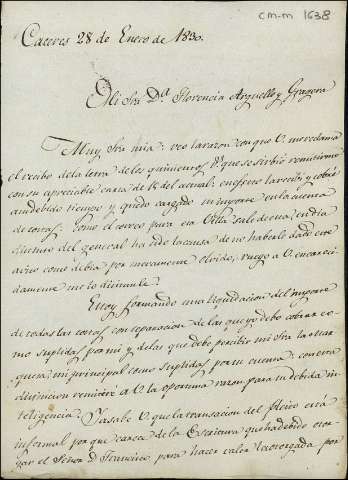 cm-m 1638
Caceres 28 de Enero de 1830.
Mi Sra Dª Florencia Arguelles y Gragera
Muy Sra mia: veo la razon con que V. me reclama
el recibo de la letra de los quinientos rs que se sirbió remitirme
con su apreciable carta de 15 del actual: en efecto la recibi, y cobré
a su debido tiempo y quedo cargado su importe en la cuenta
de costas: Como el correo para esa Villa sale de aca en dia
distinto del general ha sido la causa de no haberle dado este
aviso como debia por meramente olvido, ruego a V. encareci-
damente me lo disimule.
Estoy formando una liquidacion del importe
de todas las costas con separacion de las que yo debo cobrar co-
mo suplidas por mi y de las que debe percibir mi Sra la Mar-
quesa mi principal como suplidas por su cuenta: con esta
distincion remitiré a V. la oportuna razon para su debida in-
teligencia. Ya sabe V. que la transacion del Pleito está
informal por que carece de la Escritura que ha debido otor-
gar el Señor D. Francisco para hacer valer la otorgada por